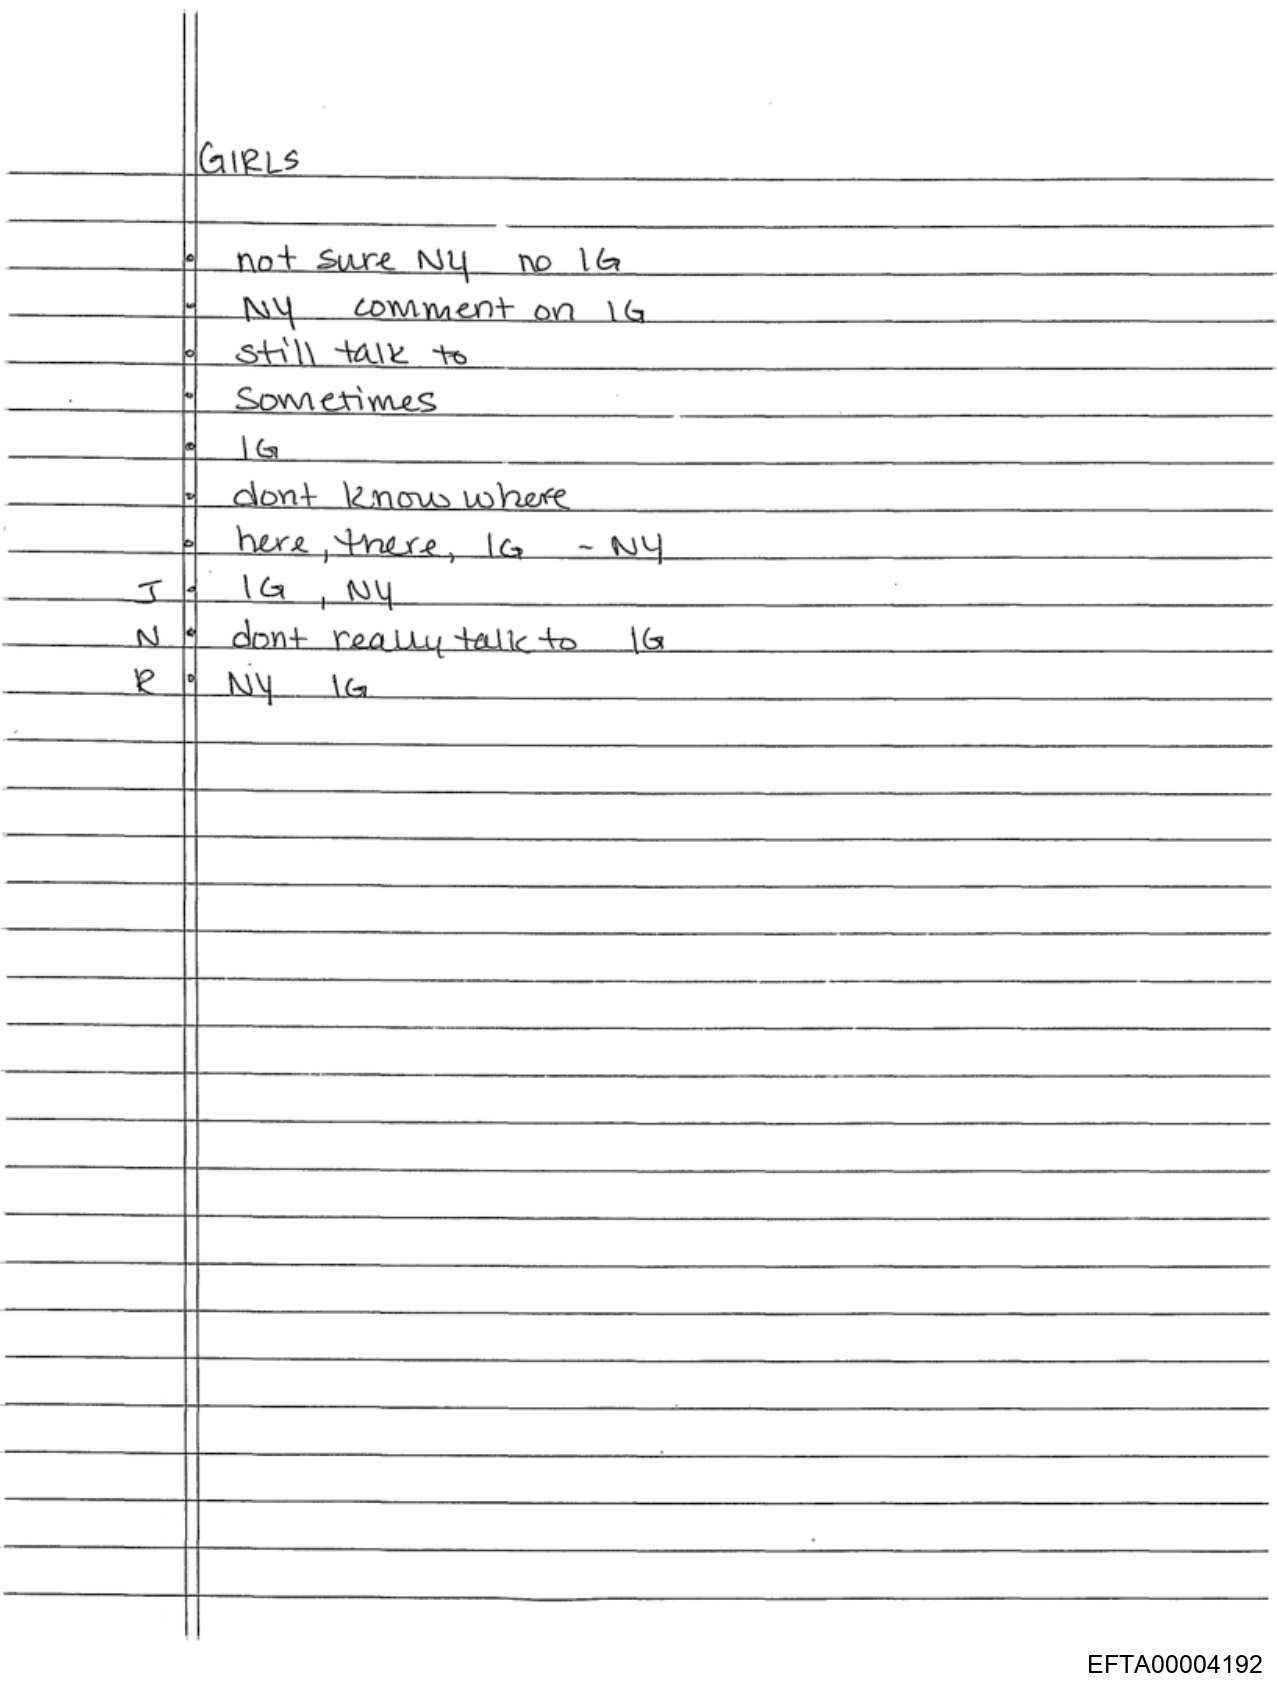 GIRLS
not sure NY no IG
NY comment on IG
still talk to
Sometimes
IG
dont know where
here, there, IG - NY
J IG, NY
N dont really talk to IG
R NY IG
EFTA00004192